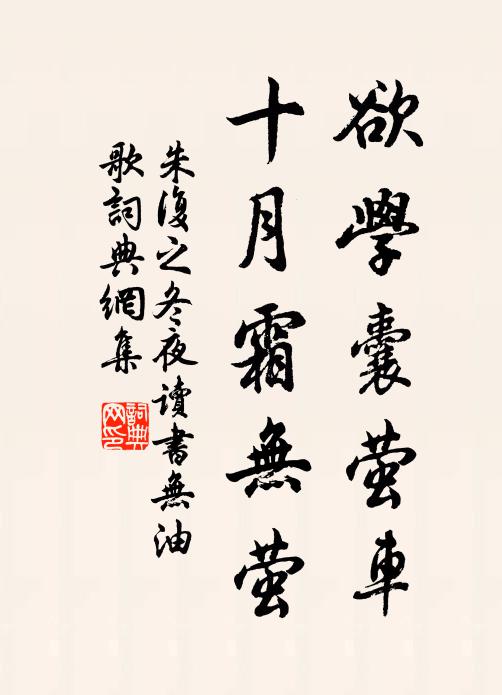 欲學囊萤車
十月霜無萤
朱復之冬夜讀書無油
歌詞典網集
詞典网印